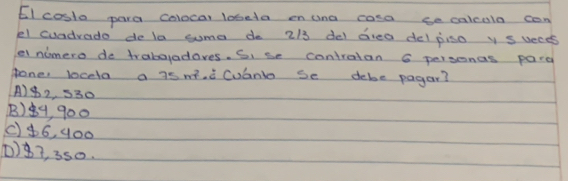 El costo para colocar loseta en una casa se calcula con
el cuadrado de la suma de 2/3 del área del piso y 5 veces
el número de trabajadores. Si se contratan 6 personas para
poner loceta a 75 m². ¿Cuánto se debe pagar?
A) $2,530
B) $4,900
C) $6,400
D) $7,350.